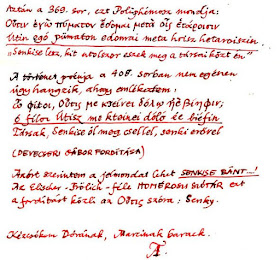 Aztán a 369. sor, ezt Polüphémosz mondja:
Οὖτιν ἐγὼ πύματον ἔδομαι μετὰ οἷς ἑτάροισιν
Útin egó pümaton edomai meta hoisz hetaroiszin
„Senkise lesz, kit utolszor eszek meg a társai közt én"
A történet poénja a 408. sorban nem egészen
úgy hangzik, ahogy emlékeztem:
Ὦ φίλοι, Οὖτις με κτείνει δόλῳ ἠὲ βίηφιν;
ó filoi Útisz me kteinei dóló ée biéfin
Társak, Senkise öl meg csellel, senki erővel
(DEVECSERI GÁBOR FORDÍTÁSA)
Azért szerintem a jelmondat lehet SENKISE BÁNT...!
Az Elischer-Frölich-féle HOMÉROSZI SZÓTÁR ezt
a fordítást közli az Οὖτις szóra: Senky.
Kézcsókom Dórának, Marcinak barack.